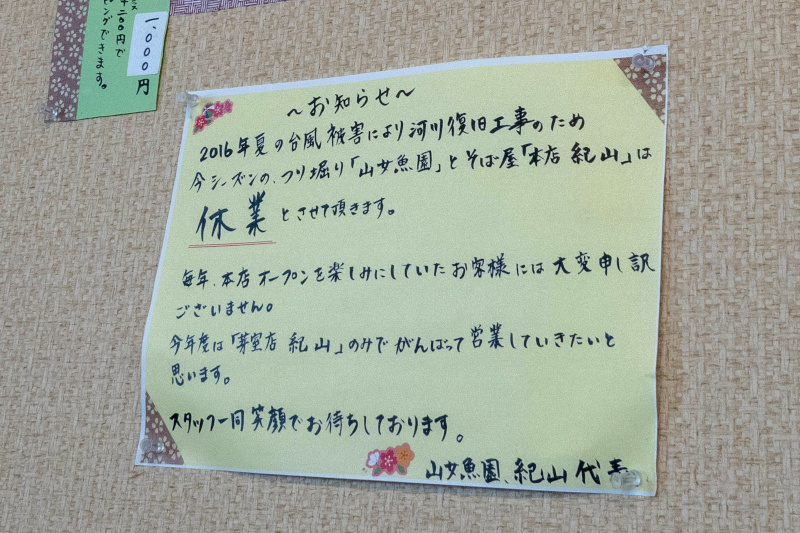 二〇〇円で
ピングできます。
1,000円
～お知らせ～
2016年夏の台風被害により河川復旧工事のため
今シーズンの、つり堀り「山女魚園」とそば屋「本店 紀山」は
休業とさせて頂きます。
毎年、本店オープンを楽しみにしていたお客様には大変申し訳
ございません。
今年度は「芽室店 紀山」のみでがんばって営業していきたいと
思います。
スタッフ一同笑顔でお待ちしております。
山女魚園、紀山 代表